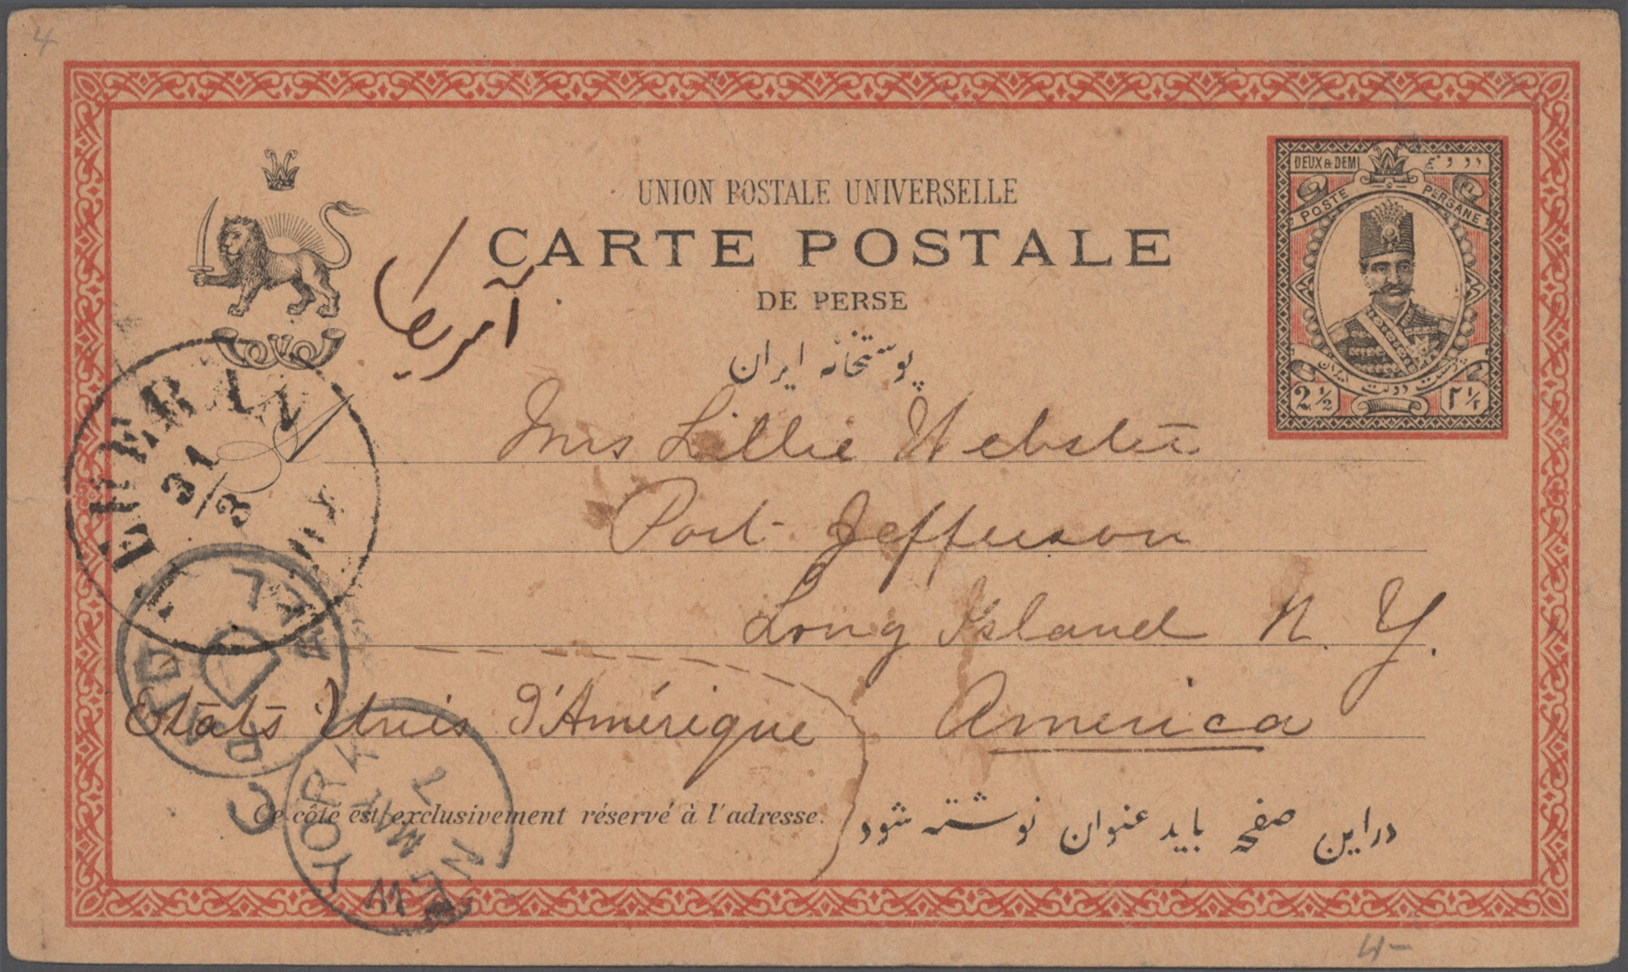 4
UNION POSTALE UNIVERSELLE
CARTE POSTALE
DE PERSE
پوستخانه ایران
آمریکا
DEUX & DEMI
POSTE PERSANE
2½ ۲½
TEHERAN
31/3
Mrs Lillie Webster
Port Jefferson
Long Island N. Y.
America
Etats Unis d'Amérique
PAID
ALL
NEW YORK
MAY
Ce côté est exclusivement réservé à l'adresse.
دراین صفحه باید عنوان نوشته شود
4-